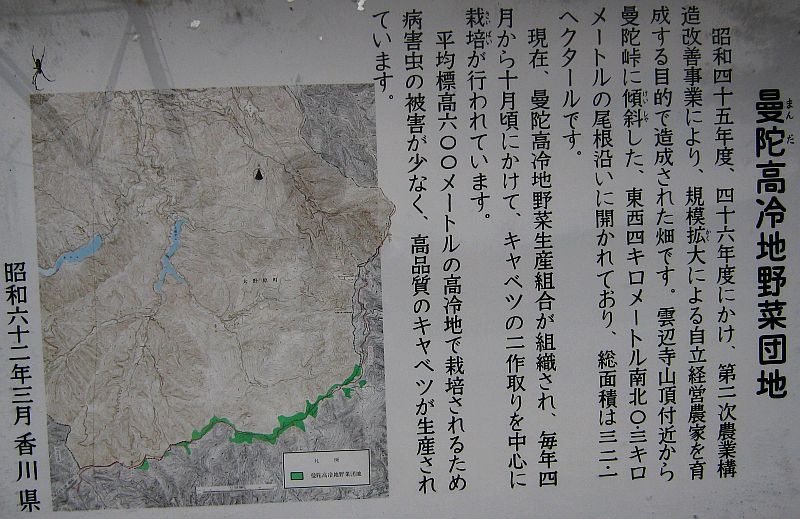 曼陀高冷地野菜団地
まんだ
昭和四十五年度、四十六年度にかけ、第二次農業構
造改善事業により、規模拡大による自立経営農家を育
かく
成する目的で造成された畑です。雲辺寺山頂付近から
曼陀峠に傾斜した、東西四キロメートル南北〇・三キロ
けいしゃ
メートルの尾根沿いに開かれており、総面積は三二・一
ヘクタールです。
現在、曼陀高冷地野菜生産組合が組織され、毎年四
月から十月頃にかけて、キャベツの二作取りを中心に
栽培が行われています。
さいばい
平均標高六〇〇メートルの高冷地で栽培されるため
病害虫の被害が少なく、高品質のキャベツが生産され
ています。
大野原町
凡例
曼陀高冷地野菜団地
昭和六十二年三月 香川県